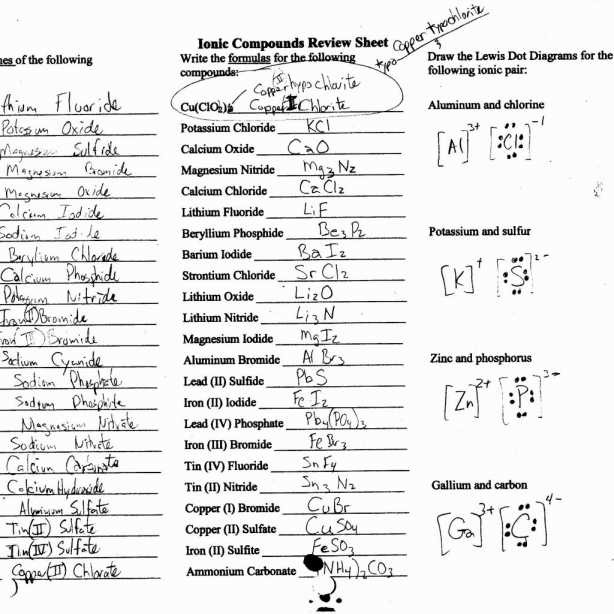 Ionic Compounds Review Sheet
nes of the following
thium Fluoride
Potassum Oxide
Magnesium Sulfide
Magnesium Bromide
Magnesium Oxide
Calcium Iodide
Sodium Iodide
Berylium Chloride
Calcium Phosphide
Potassium Nitride
Iron(II)Bromide
Iron(III)Bromide
Sodium Cyanide
Sodium Phosphate
Sodium Phosphite
Magnesium Nitrate
Sodium Nitrate
Calcium Carbonate
Calcium Hydroxide
Aluminum Sulfate
Tin(II) Sulfate
Tin(IV) Sulfate
Copper(II) Chlorate
Write the formulas for the following
compounds:
typo
Chlorite
Potassium Chloride KCl
Calcium Oxide CaO
Magnesium Nitride Mg3N2
Calcium Chloride CaCl2
Lithium Fluoride LiF
Beryllium Phosphide Be3P2
Barium Iodide BaI2
Strontium Chloride SrCl2
Lithium Oxide Li2O
Lithium Nitride Li3N
Magnesium Iodide MgI2
Aluminum Bromide AlBr3
Lead (II) Sulfide PbS
Iron (II) Iodide FeI2
Lead (IV) Phosphate Pb4(PO4)3
Iron (III) Bromide FeBr3
Tin (IV) Fluoride SnF4
Tin (II) Nitride Sn3N2
Copper (I) Bromide CuBr
Copper (II) Sulfate CuSO4
Iron (II) Sulfite FeSO3
Ammonium Carbonate (NH4)2CO3
Draw the Lewis Dot Diagrams for the
following ionic pair:
Aluminum and chlorine
[Al]3+ [Cl]-1
Potassium and sulfur
[K]+ [S]2-
Zinc and phosphorus
[Zn]2+ [P]3-
Gallium and carbon
[Ga]3+ [C]4-